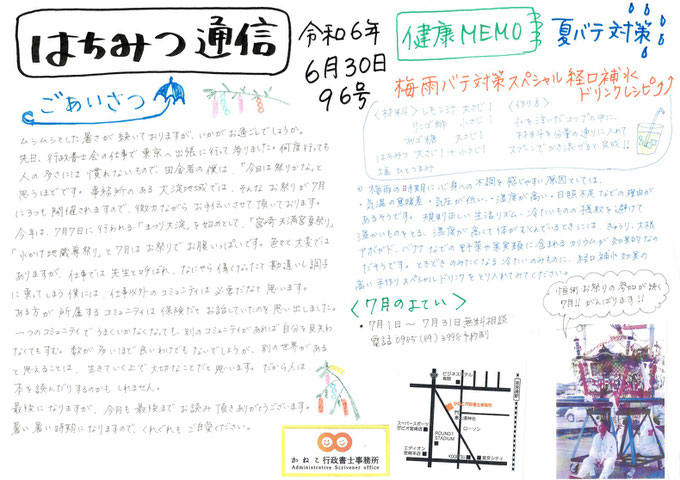 はちみつ通信
令和6年
6月30日
96号
ごあいさつ
ムシムシとした暑さが続いておりますが、いかがお過ごしでしょうか。
先日、行政書士会の仕事で東京へ出張に行って参りました。何度行っても
人の多さには慣れないもので、田舎者の僕は、「今日は祭りかな。」と
思うほどです。事務所のある大淀地域では、そんなお祭りが7月
に3つも開催されますので、微力ながらお手伝いさせて頂いております。
今年は、7月7日に行われる「まつり大淀」を始めとして、「宮崎天満宮夏祭り」
「水かけ地蔵尊祭り」と7月はお祭りでお腹いっぱいです。色々と大変では
ありますが、仕事では先生と呼ばれ、なにやら偉くなったと勘違いし調子
に乗ってしまう僕には、仕事以外のコミュニティは必要だなと思います。
ある方が所属するコミュニティは保険だとお話していたのを思い出しました。
一つのコミュニティでうまくいかなくなっても、別のコミュニティがあれば自分を見失わ
なくてもすむ。数が多いほど良いわけでもないでしょうが、別の世界がある
と思えることは、生きていく上で大切なことだと思います。だから人は、
本を読んだりするのかもしれません。
最後になりますが、今月も最後までお読み頂きありがとうございます。
暑い暑い時期になりますので、くれぐれもご自愛ください。
かねこ行政書士事務所
Administrative Scrivener office
健康MEMO
夏バテ対策
梅雨バテ対策スペシャル経口補水
ドリンクレシピ
<材料> レモン汁 大さじ1
リンゴ酢 小さじ1
オリゴ糖 大さじ1
はちみつ 大さじ1
塩 ひとつまみ
<作り方>
材料を分量の通りに入れて
スプーンでかき混ぜて完成!!
◎ 梅雨の時期に心身への不調を感じやすい原因としては、
・気温の寒暖差・気圧が低い・湿度が高い・日照不足などの理由が
あるそうです。規則正しい生活リズム・冷たいものの摂取を避けて
温かいものをとる、湿度が高くて体がむくんでいるときには、きゅうり、大根
アボカド、バナナなどの野菜や果実類に含まれるカリウムが効果的なの
だそうです。ときどきのみたくなる冷たいのみものに、経口補水効果の
高い手作りスペシャルドリンクをとり入れてみてください。
<7月のよてい>
・7月1日〜7月31日無料相談
電話0985(89)3998予約制
恒例お祭りの参加が続く
7月!!がんばります!!
ビジネスホテル
かねこ行政書士事務所
ローソン
スーパースポーツ
ゼビオ宮崎店
ROUND1
STADIUM
エディオン
宮崎本店